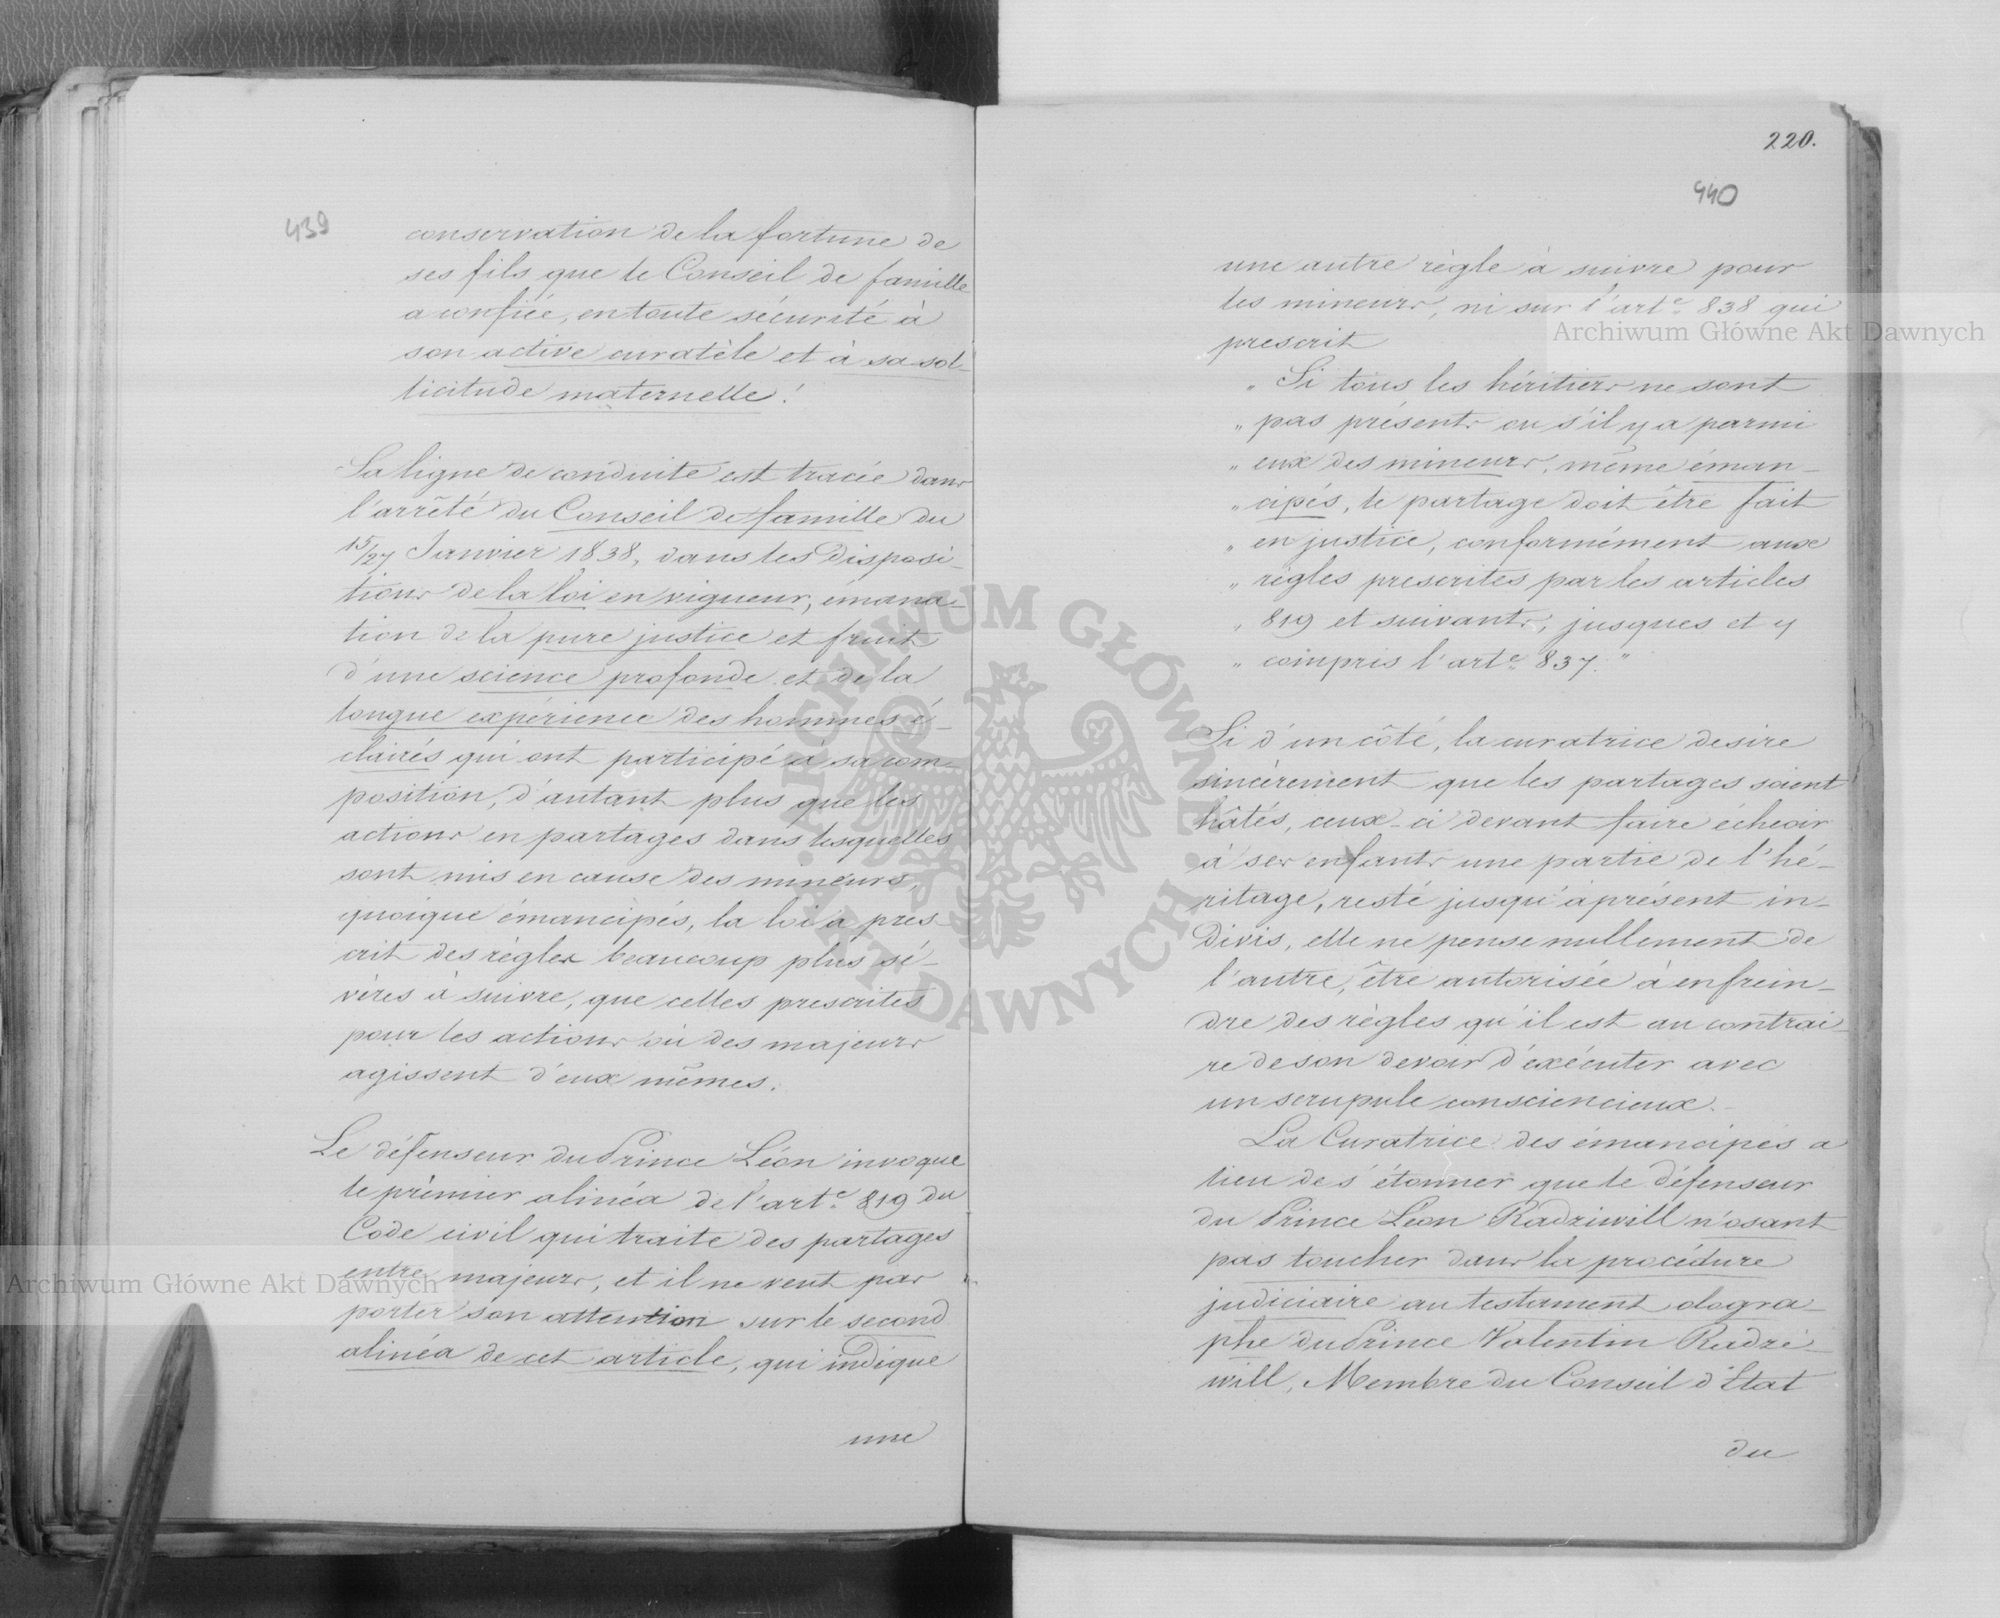 439
conservation de la fortune de
ses fils que le Conseil de famille
a confiée, en toute sécurité à
son active curatèle et à sa sol-
licitude maternelle!
Sa ligne de conduite est tracée dans
l'arrêté du Conseil de famille du
15/27 Janvier 1838, dans les disposi-
tions de la loi en vigueur, émana-
tion de la pure justice et fruit
d'une science profonde et de la
longue expérience des hommes é-
clairés qui ont participé à sa com-
position, d'autant plus que les
actions en partages dans lesquelles
sont mis en cause des mineurs,
quoique émancipés, la loi a pres-
crit des règles beaucoup plus sé-
vères à suivre, que celles prescrites
pour les actions où des majeurs
agissent d'eux mêmes.
Le défenseur du Prince Léon invoque
le prèmier alinéa de l'artc. 819 du
Code civil qui traite des partages
entre majeurs, et il ne veut pas
porter son attention sur le second
alinéa de cet article, qui indique
une
220.
440
une autre règle à suivre pour
les mineurs, ni sur l'artc. 838 qui
prescrit
" Si tous les héritiers ne sont
" pas présents ou s'il y a parmi
" eux des mineurs, même éman-
" cipés, le partage doit être fait
" en justice, conformément aux
" règles prescrites par les articles
" 819 et suivants, jusques et y
" compris l'artc. 837."
Si d'un côté, la curatrice desire
sincèrement que les partages soient
hâtés, ceux-ci devant faire échéoir
à ses enfants une partie de l'hé-
ritage, resté jusqu'àprésent in-
divis, elle ne pense nullement de
l'autre, être autorisée à enfrein-
dre des règles qu'il est au contrai-
re de son devoir d'exécuter avec
un scrupule consciencieux.-
La Curatrice des émancipés a
lieu de s'étonner que le défenseur
du Prince Léon Radziwill n'osant
pas toucher dans la procédure
judiciaire au testament ologra-
phe du Prince Valentin Radzi-
will, Membre du Conseil d'Etat
du
Archiwum Główne Akt Dawnych
Archiwum Główne Akt Dawnych
ARCHIWUM GŁÓWNE AKT DAWNYCH